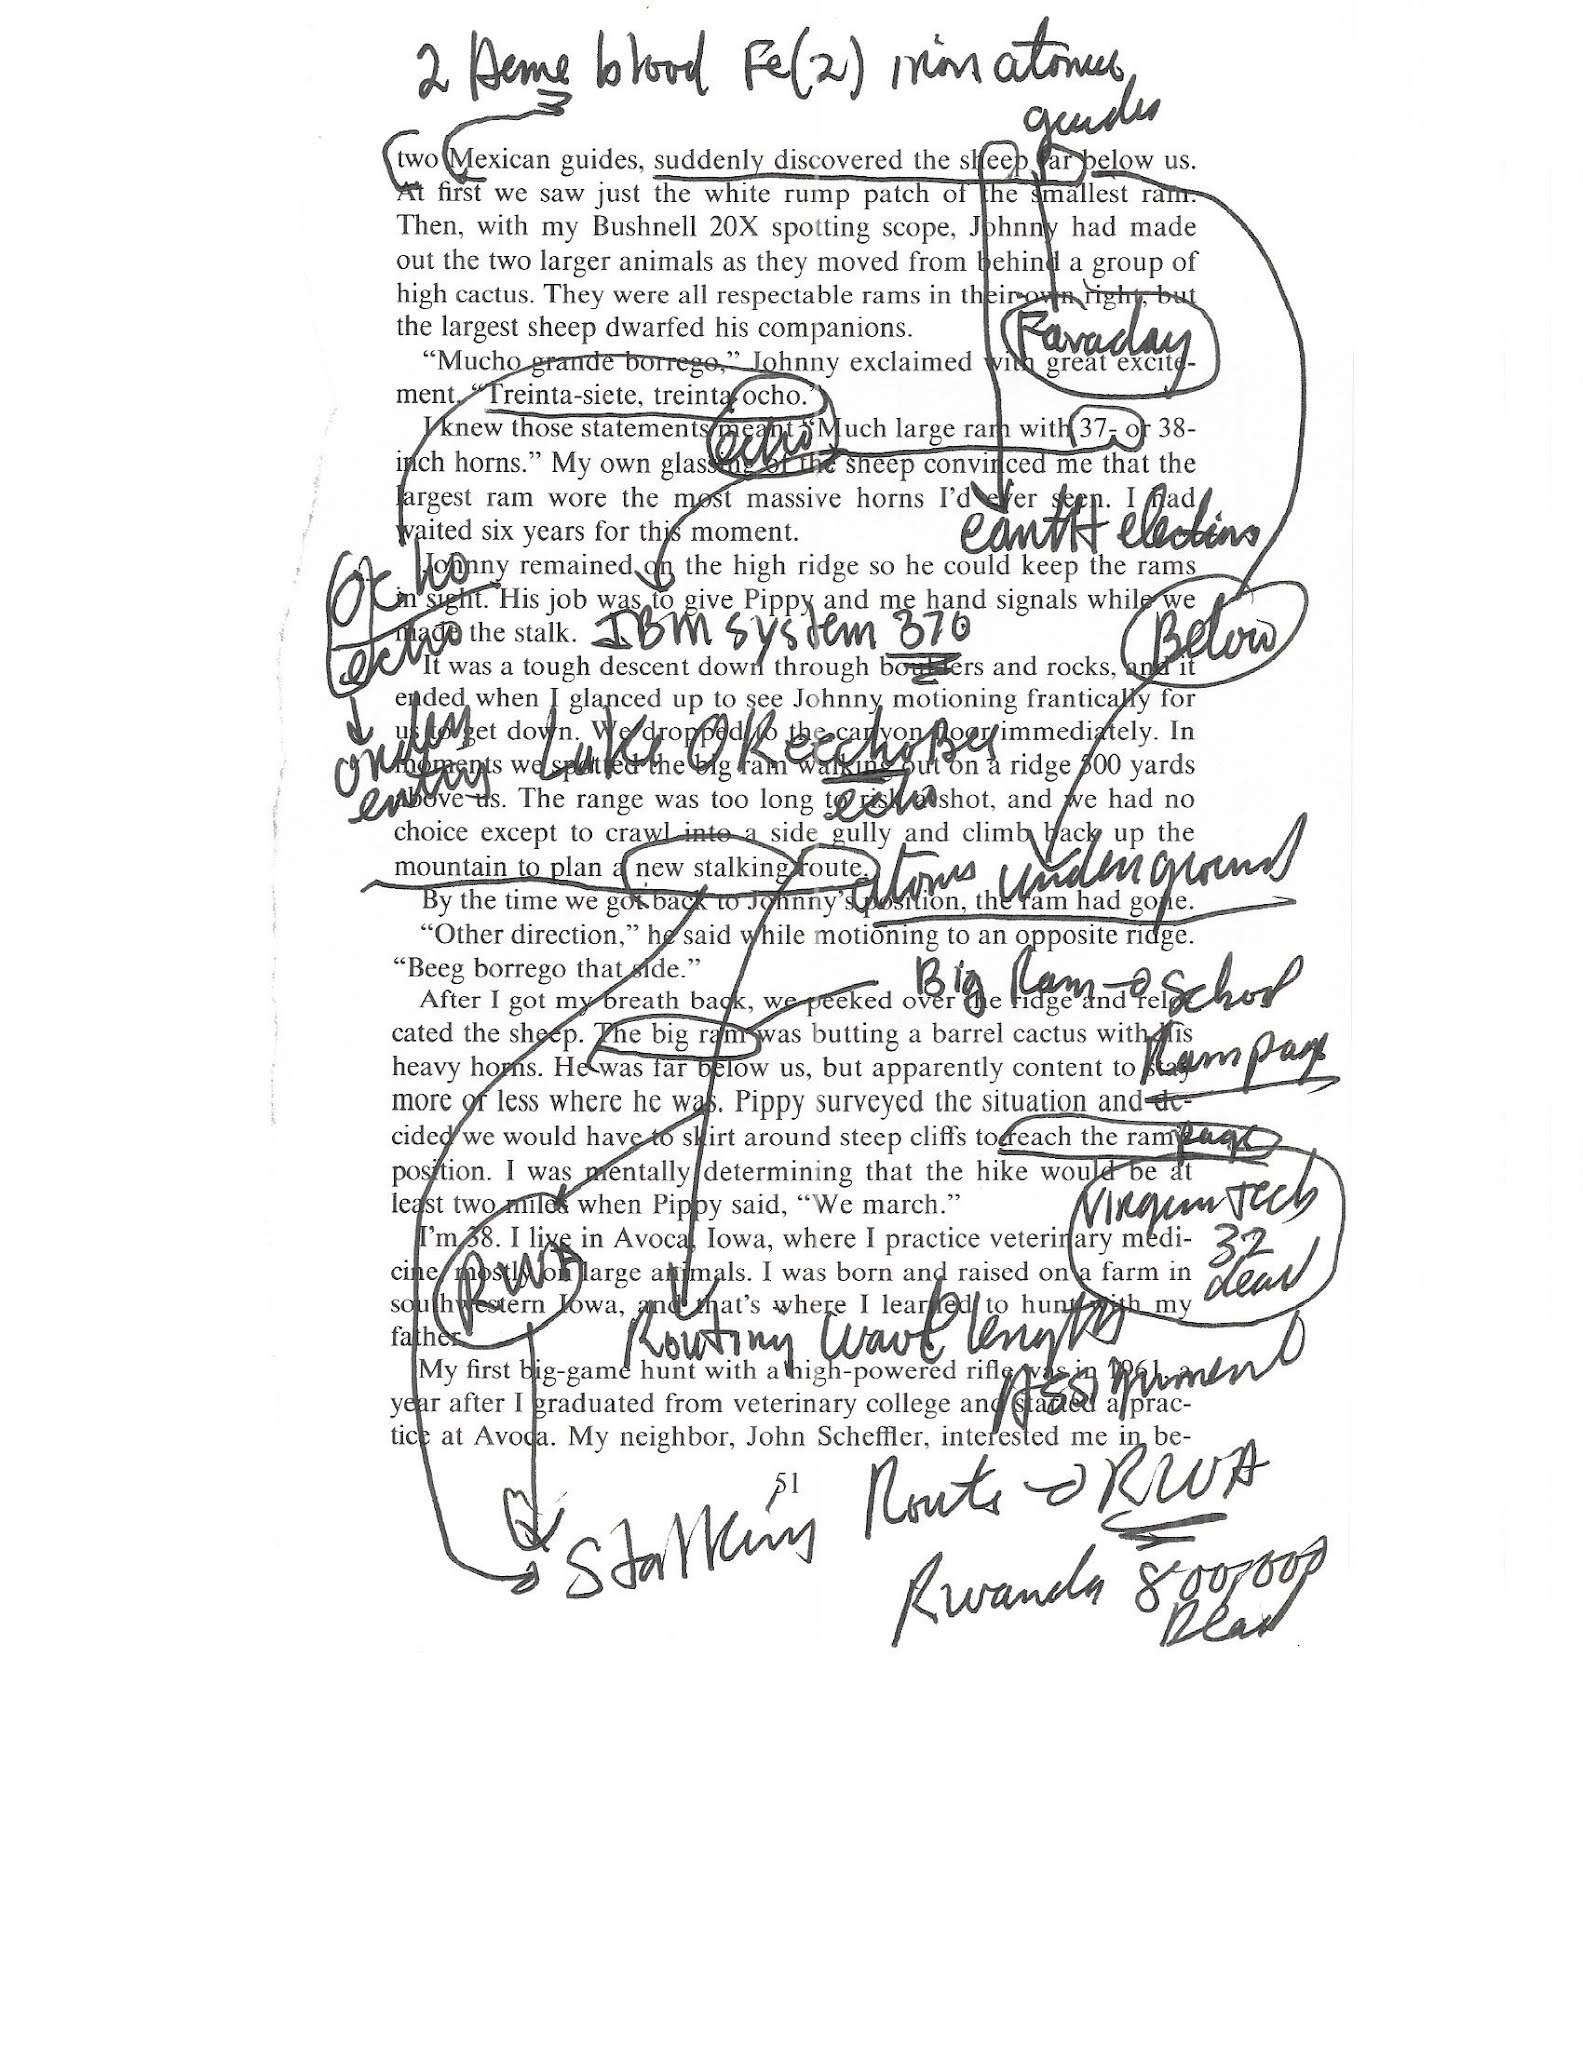 2 Heme blood Fe(2) iron atoms
guides
two Mexican guides, suddenly discovered the sheep far below us.
At first we saw just the white rump patch of the smallest ram.
Then, with my Bushnell 20X spotting scope, Johnny had made
out the two larger animals as they moved from behind a group of
high cactus. They were all respectable rams in their own right, but
the largest sheep dwarfed his companions.
Faraday
“Mucho grande borrego,” Johnny exclaimed with great excite-
ment. “Treinta-siete, treinta ocho.”
I knew those statements meant “Much large ram with 37- or 38-
echo
inch horns.” My own glassing of the sheep convinced me that the
largest ram wore the most massive horns I’d ever seen. I had
waited six years for this moment.
earth electrins
Johnny remained on the high ridge so he could keep the rams
Ocho
in sight. His job was to give Pippy and me hand signals while we
made the stalk.
IBM system 370
Below
echo
It was a tough descent down through boulders and rocks, and it
ended when I glanced up to see Johnny motioning frantically for
us to get down. We dropped to the canyon floor immediately. In
Lake OKeechoBee
moments we spotted the big ram walking out on a ridge 300 yards
entry
echo
above us. The range was too long to risk a shot, and we had no
choice except to crawl into a side gully and climb back up the
mountain to plan a new stalking route.
atoms underground
By the time we got back to Johnny’s position, the ram had gone.
“Other direction,” he said while motioning to an opposite ridge.
“Beeg borrego that side.”
Big Ram → School
After I got my breath back, we peeked over the ridge and relo-
cated the sheep. The big ram was butting a barrel cactus with his
Rampage
heavy horns. He was far below us, but apparently content to stay
more or less where he was. Pippy surveyed the situation and de-
cided we would have to skirt around steep cliffs to reach the ram
page
position. I was mentally determining that the hike would be at
least two miles when Pippy said, “We march.”
Virginia Tech
32
dead
I’m 38. I live in Avoca, Iowa, where I practice veterinary medi-
cine, mostly on large animals. I was born and raised on a farm in
RWA
southwestern Iowa, and that’s where I learned to hunt with my
father.
Routing wavelength
Assignment
My first big-game hunt with a high-powered rifle was in 1961, a
year after I graduated from veterinary college and started a prac-
tice at Avoca. My neighbor, John Scheffler, interested me in be-
51
Route → RWA
Stalking
Rwanda 800,000
Dead